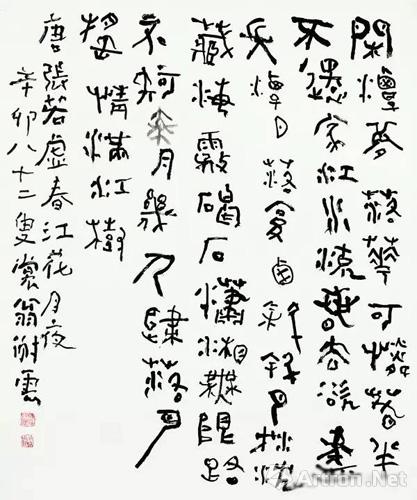 閑潭夢落花可憐春半
不還家江水流春去欲盡
江潭月落復西斜斜月沉沉
藏海霧碣石瀟湘無限路
不知乘月幾人歸落月
搖情滿江樹
唐張若虛春江花月夜
辛卯八十二叟裳翁謝雲
Artron.Net